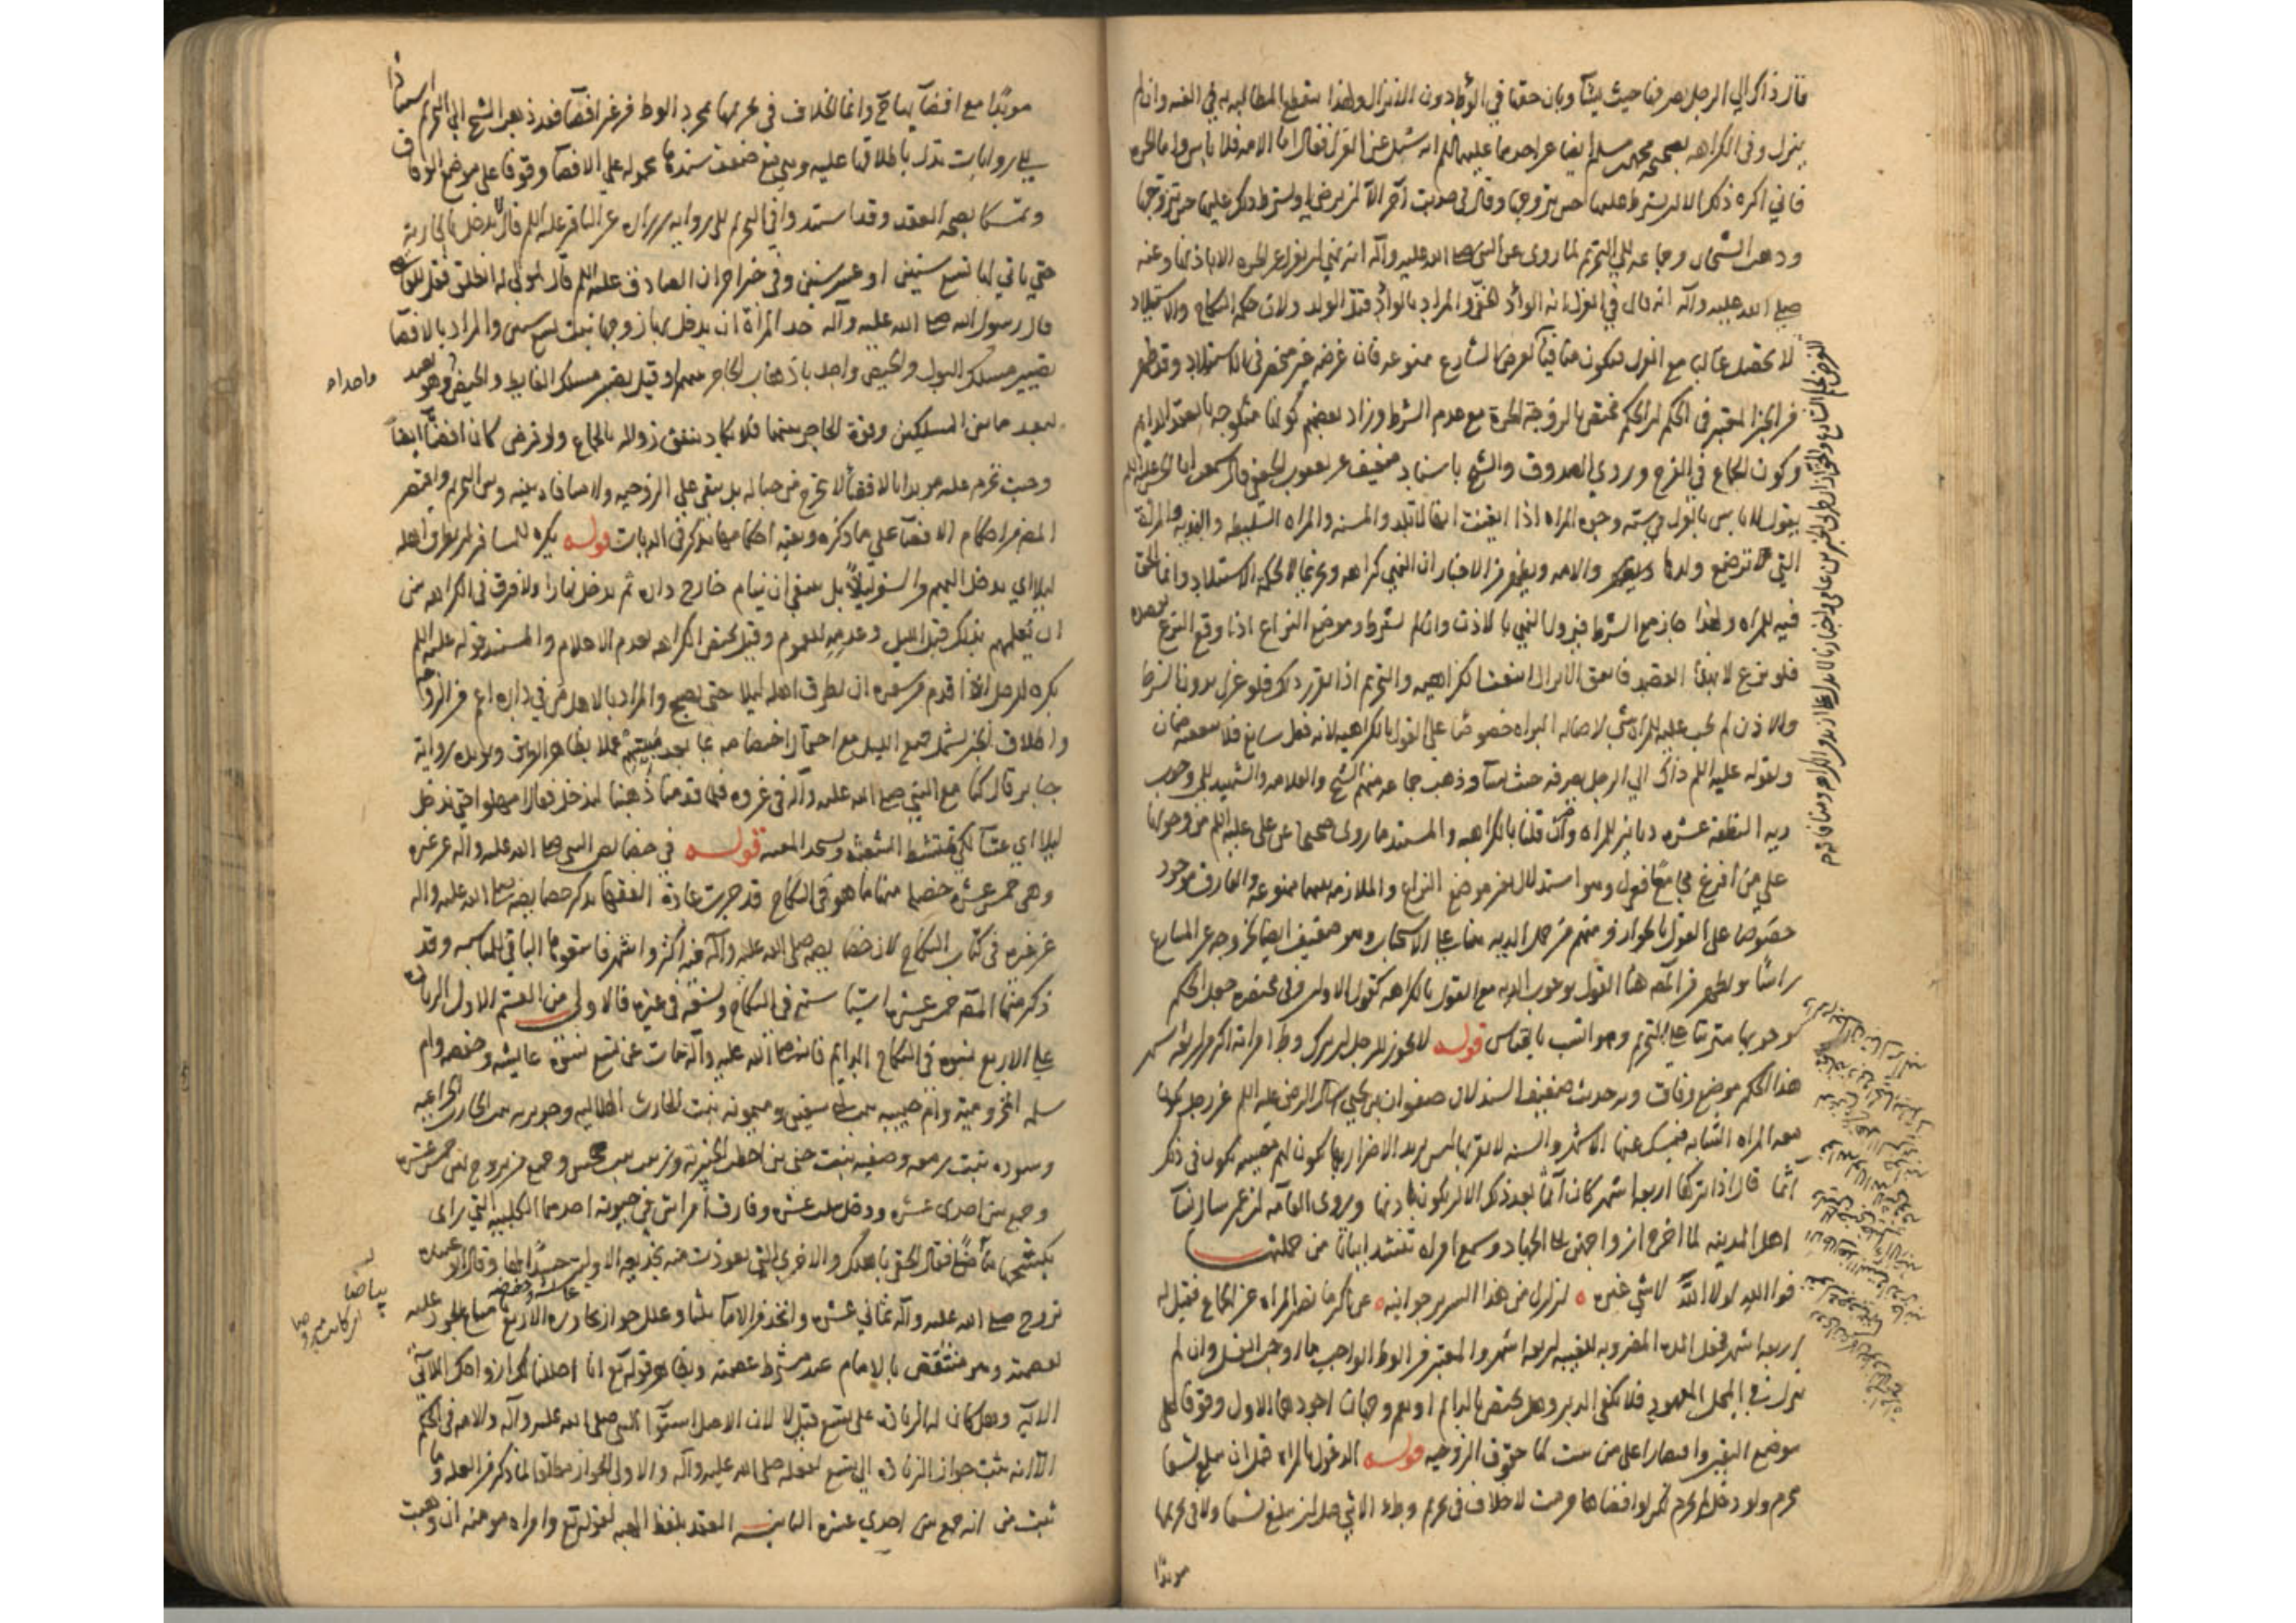 قال ذاك الي الرجل يصرفه حيث يشآ وبان حقها في الوطء دون الانزال ولهذا سقط المطالبه به في الفئه وان لم
ينزل وفي الكراهه بصحيحه محمد بن مسلم ايضا عن احدهما عليهما السلم انه سئل عن العزل فقال اما الامه فلا باس واما الحره
فاني اكره ذلك الا ان يشترط عليها حين يتزوجها وقال في حديث آخر الا ان ترضى او يشترط ذلك عليها حين يتزوجها
وذهب الشيخان وجماعه الي التحريم لما روى عن النبي صلى الله عليه وآله انه نهى ان يعزل عن الحره الا باذنها وعنه
صلى الله عليه وآله انه قال في العزل انه الوأد الخفي والمراد بالوأد قتل الولد ولان حكمة النكاح والاستيلاد
لا تحصل غالبا مع العزل فيكون منافيا لغرض الشارع ممنوعه فان غرضه غير منحصر في الاستيلاد وقد ظهر
من الخبر المعتبر في الحكم ان الحكم مختص بالزوجة الحرة مع عدم الشرط وزاد بعضهم كونها منكوحه بالعقد الدايم
وكون الجماع في الفرج وروي الصدوق والشيخ باسناد ضعيف عن يعقوب الجعفي قال سمعت ابا الحسن عليه السلم
يقول لا باس بالعزل في سته وجوه المراه اذا ايقنت انها لا تلد والمسنه والمراه السليطه والبذيه والمراة
التي لا ترضع ولدها والامه ويظهر من الاخبار ان النهي كراهه وتحريما لحكمة الاستيلاد وانما الحق
فيه للمراه ولهذا جاز مع الشرط فيزول النهي بالاذن وان لم يشترط وموضع النزاع اذا وقع النزع بهذه
فلو نزع لا بهذا القصد فاتفق الانزال انتفت الكراهيه والتحريم اذا تقرر ذلك فلو عزل بدون الشرط
والاذن لم يجب عليه للمراة شي لاصالة البراه خصوصا على القول بالكراهيه لانه فعل سايغ فلا يتعقبه ضمان
ولقوله عليه السلم ذاك الي الرجل يصرفه حيث يشآ وذهب جماعه منهم الشيخ والعلامه والشهيد الي وجوب
ديه النطفة عشره دنانير للمراه وان قلنا بالكراهيه والمستند ما روى صحيحا عن علي عليه السلم من وجوبها
علي من افزع مجامعا فعزل وهو استدلال بغير موضع النزاع والملازمه بينهما ممنوعه والفارق موجود
خصوصا على القول بالجواز ومنهم من حمل الديه هنا على الاستحباب وهو ضعيف ايضا لخروجه عن المنازع
راسا ويظهر من المص هنا القول بوجوب الديه مع القول بالكراهه كقول الاول وفي مختصره جعل الحكم
بوجوبها مترتبا على التحريم وهو انسب بالقياس قوله لا يجوز للرجل ان يترك وطء امراته اكثر من اربعة اشهر
هذا الحكم موضع وفاق وبه حديث ضعيف السند لان صفوان بن يحيى سال الرضى عليه السلم عن رجل يكون
عنده المراه الشابه فيمسك عنها الاشهر والسنه لا يقربها ليس يريد الاضرار بها يكون لهم مصيبه يكون في ذلك
آثما قال اذا تركها اربعة اشهر كان آثما بعد ذلك الا ان يكون باذنها وروى العامه ان عمر سال نسآ
اهل المدينه لما اخرج ازواجهن الى الجهاد وسمع امراه تنشد ابياتا من جملتها
فوالله لولا الله لا شي غيره لزلزل من هذا السرير جوانبه عن اكثر ما تصبر المراه عن الجماع فقيل له
اربعة اشهر فجعل المدة المضروبه للغيبه اربعة اشهر والمعتبر من الوطء الواجب ما اوجب الغسل وان لم
ينزل في المحل المعهود فلا يكفي الدبر وهل يختص بالدايم او يعم وجهان اجودهما الاول وقوفا على
موضع اليقين واقتصارا على من ثبت لها حقوق الزوجيه قوله الدخول بالمراه قبل ان تبلغ تسعا
محرم ولو دخل لم تحرم لكن لو افضاها حرمت لا خلاف في تحريم وطء الانثي قبل ان تبلغ تسعا ولا في تحريمها
موبدا
موبدا مع افضآيها وانما الخلاف في تحريمها بمجرد الوطء من غير افضآ فقد ذهب الشيخ الي التحريم استنادا
الي روايات تدل باطلاقها عليه وهي مع ضعف سندها محموله علي الافضآ وقوفا على موضع الوفاق
وتمسكا بصحه العقد وقد استند وا في التحريم الى رواية زراره عن الباقر عليه السلم قال لا يدخل بالجاريه
حتي ياتي لها تسع سنين او عشر سنين وفي خبر اخر ان الصادق عليه السلم قال لمولى له انطلق فقل للقاضي
قال رسول الله صلى الله عليه وآله حد المراة ان يدخل بها زوجها بنت تسع سنين والمراد بالافضآ
تصيير مسلك البول والحيض واحدا باذهاب الحاجز بينهما وقيل تصيير مسلك الغايط والحيض وهو بعيد
واحدا
لبعد ما بين المسلكين وقوة الحاجز بينهما فلا يكاد يتفق زواله بالجماع ولو فرض كان افضآ ايضا
وحيث تحرم عليه موبدا بالافضآ لا تخرج من حباله بل يبقي علي الزوجيه ولا منافاه بينه وبين التحريم واقتصر
المص من احكام الافضآ علي ما ذكره وبقيه احكامها تذكر في الديات قوله يكره للمسافر ان يطرق اهله
ليلا اي يدخل اليهم من السفر ليلا بل ينبغي ان ينام خارج داره ثم يدخل نهارا ولا فرق في الكراهه بين
ان يعلمهم بذلك قبل الليل وعدمه للعموم وقيل يختص الكراهه بعدم الاعلام والمستند قوله عليه السلم
يكره للرجل اذا قدم من سفره ان يطرق اهله ليلا حتى يصبح والمراد بالاهل من في داره اعم من الزوجه
واطلاق الخبر يشمل جميع الليل مع احتمال اختصاصه بما بعد مبيتهم عملا بظاهر الطرق ويويده رواية
جابر قال كنا مع النبي صلى الله عليه وآله في غزوه فلما قدمنا ذهبنا لندخل فقال امهلوا حتي ندخل
ليلا اي عشآ لكي تمتشط الشعثه وتستحد المغيبه قوله في خصايص النبي صلى الله عليه وآله عن غيره
وهي خمس عشرة خصله منها ما هو في النكاح قد جرت عادة الفقهآ بذكر خصايصه صلى الله عليه وآله
عن غيره في كتاب النكاح لان خصايصه صلى الله عليه وآله فيه اكثر واشهر فاتبعوها الباقي للمناسبه وقد
ذكر منها المص خمس عشرة اشيآ سته في النكاح وتسعة في غيره فالاولى من القسم الاول الزياده
علي الاربع نسوه في النكاح الدايم فانه صلى الله عليه وآله مات عن تسع نسوة عايشه وحفصه وام
سلمه المخزوميه وام حبيبه بنت ابي سفين وميمونه بنت الحارث الهلاليه وجويريه بنت الحارث الخزاعيه
وسوده بنت زمعه وصفيه بنت حيي بن اخطب الخيبريه وزينب بنت جحش وجميع من تزوج بهن خمس عشره
وجمع بين احدى عشره ودخل بثلث عشره وفارق امراتين في حيوته احدهما الكلبيه التي راى
بكشحها بياضا فقال الحقي باهلك والاخرى التي تعوذت منه بخديعه الاولى حسدا لها وقال ابو عبيده
عائشه وحفصه
بياضا
تزوج صلى الله عليه وآله ثماني عشره واتخذ من الامآ ثلثا وعلل جواز تجاوزه الاربع بامتناع الجور عليه
لعصمته وهو منتقض بالامام عند مشترط عصمته وبظاهر قوله تع انا احللنا لك ازواجك اللاتي
الاية وهل كان له الزياده على تسع قيل لا لان الاصل استوآ النبي صلى الله عليه وآله والامه في الحكم
الا انه ثبت جواز الزياده الي تسع لفعله صلى الله عليه وآله والاولى الجواز مطلقا لما ذكر من العله وما
ثبت من انه جمع بين احدي عشره الثانيه العقد بلفظ الهبه لقوله تع وامراه مومنه ان وهبت